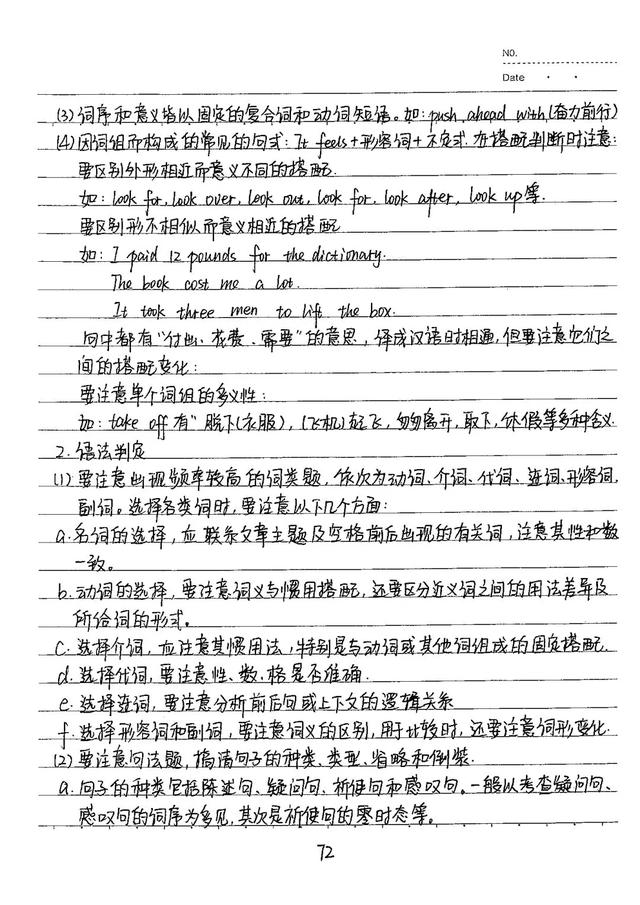 NO.
Date
(3)词序和意义皆以固定的复合词和动词短语。如:push ahead with(奋力前行)
(4)因词组而构成的常见的句式:It feels+形容词+不定式.在搭配判断时注意:
要区别外形相近而意义不同的搭配.
如:look for, look over, look out, look for, look after, look up等.
要区别形不相似而意义相近的搭配
如:I paid 12 pounds for the dictionary.
The book cost me a lot.
It took three men to lift the box.
句中都有“付出、花费、需要”的意思,译成汉语时相通,但要注意它们之
间的搭配变化:
要注意单个词组的多义性:
如:take off 有“脱下(衣服),(飞机)起飞,匆匆离开,取下,休假等多种含义.
2.语法判定
(1)要注意出现频率较高的词类题,依次为动词、介词、代词、连词、形容词,
副词。选择各类词时,要注意以下几个方面:
a.名词的选择,应联系文章主题及空格前后出现的有关词,注意其性和数
一致。
b.动词的选择,要注意词义与惯用搭配,还要区分近义词之间的用法差异及
所给词的形式。
c.选择介词,应注意其惯用法,特别是与动词或其他词组成的固定搭配.
d.选择代词,要注意性、数、格是否准确.
e.选择连词,要注意分析前后句或上下文的逻辑关系
f.选择形容词和副词,要注意词义的区别,用于比较时,还要注意词形变化.
(2)要注意句法题,搞清句子的种类、类型、省略和倒装.
a.句子的种类包括陈述句、疑问句、祈使句和感叹句。一般以考查疑问句、
感叹句的词序为多见,其次是祈使句的零时态等。
72